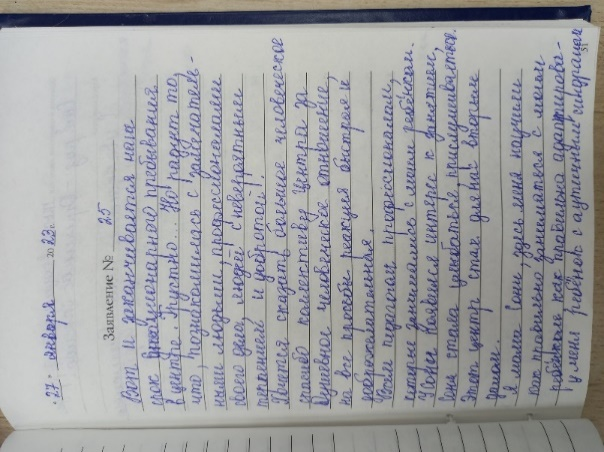 "27" января 2023 г.
Заявление № 25
Вот и заканчивается наш
срок стационарного пребывания
в центре. Грустно... Но радует то,
что, познакомилась с замечатель-
ными людьми, профессионалами
своего дела, людей с невероятным
терпением и добротой!
Хочется сказать большое человеческое
спасибо коллективу Центра за
душевное человеческое отношение,
на все просьбы реакция быстрая и
доброжелательная.
Всем педагогам, профессионалам,
которые занимались с моим ребёнком.
У Сони появился интерес к занятиям,
Соня стала улыбаться, прислушиваться.
Этот центр стал для нас вторым
домом.
Я мама Сони, здесь меня научили
как правильно заниматься с моим
ребёнком, как правильно адаптирова-
у меня ребёнок с аутичным синдромом
51